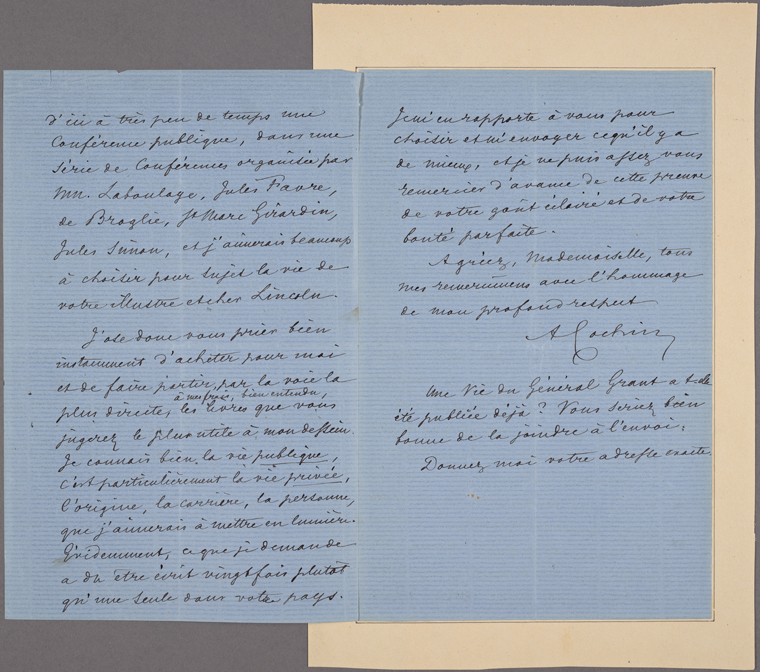 d'ici à très peu de temps une
Conférence publique, dans une
Série de Conférences organisée par
MM. Laboulaye, Jules Favre,
de Broglie, St Marc Girardin,
Jules Simon, et j'aimerais beaucoup
à choisir pour sujet la vie de
votre illustre et cher Lincoln.
J'ose donc vous prier bien
instamment d'acheter pour moi
et de faire partir, par la voie la
à mes frais, bien entendu,
plus directe, les livres que vous
jugerez le plus utile à mon dessein.
Je connais bien la vie publique,
c'est particulièrement la vie privée,
l'origine, la carrière, la personne,
que j'aimerais à mettre en lumière.
Evidemment, ce que je demande
a du être écrit vingt fois plutôt
qu'une seule dans votre pays.
Je m'en rapporte à vous pour
choisir et m'envoyer ce qu'il y a
de mieux, et je ne puis assez vous
remercier d'avance de cette preuve
de votre goût éclairé et de votre
bonté parfaite.
Agréez, Mademoiselle, tous
mes remerciemens avec l'hommage
de mon profond respect
A Cochin
Une Vie du Général Grant a-t-elle
été publiée déjà? Vous seriez bien
bonne de la joindre à l'envoi.
Donnez moi votre adresse exacte.